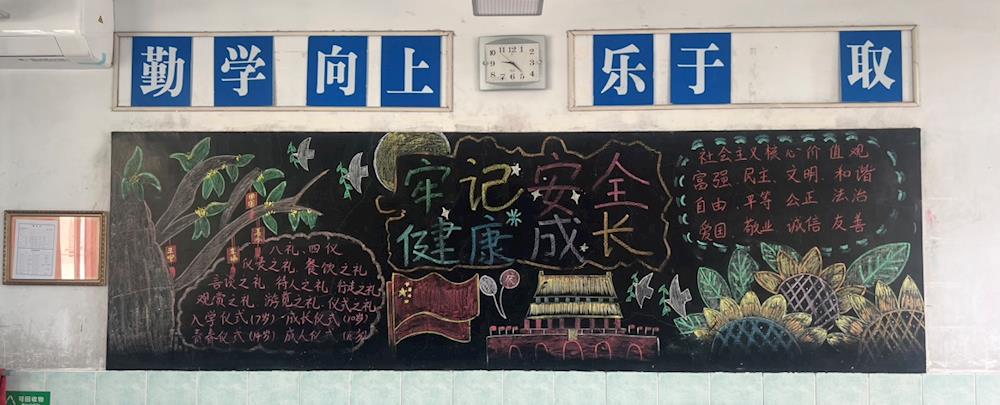 勤学向上
乐于 取
牢记安全
健康成长
社会主义核心价值观
富强、民主、文明、和谐
自由、平等 公正 法治
爱国 敬业 诚信 友善
八礼、四仪
仪表之礼、餐饮之礼
言谈之礼 待人之礼 行走之礼
观赏之礼 游览之礼 仪式之礼
入学仪式(7岁)·成长仪式(10岁)
青春仪式(14岁) 成人仪式(18岁)
可回收物